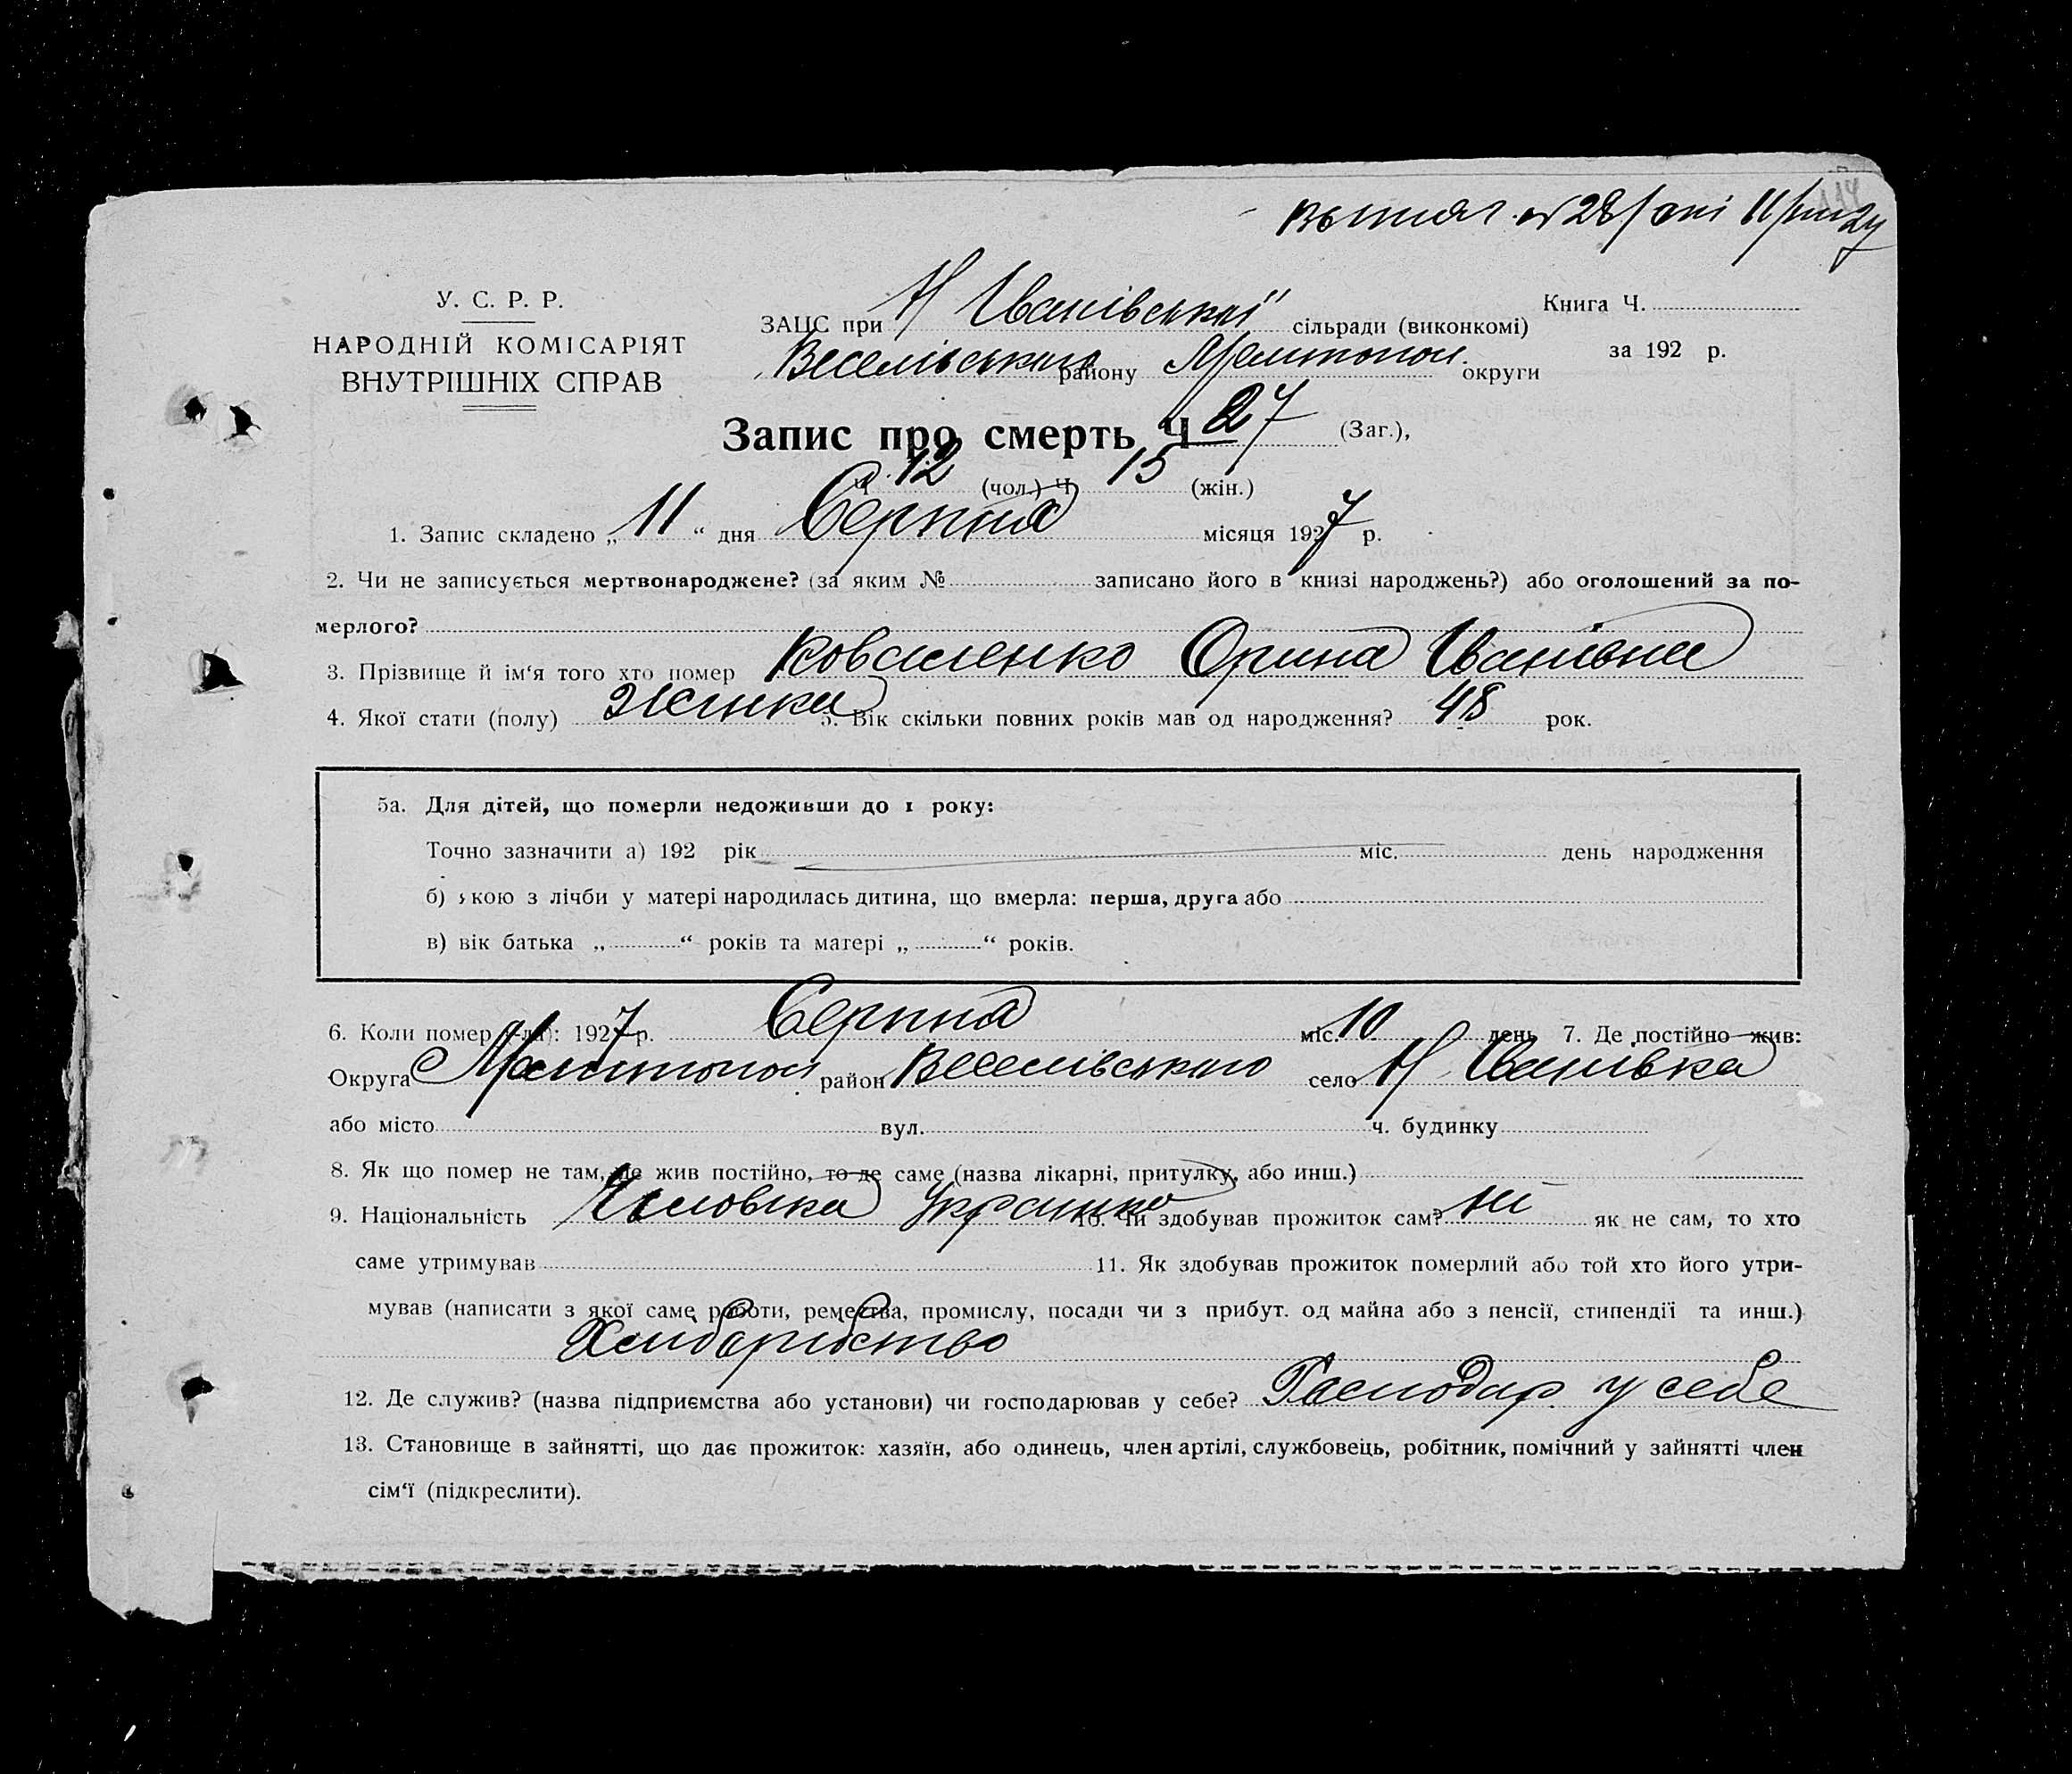 114
У. С. Р. Р.
НАРОДНІЙ КОМІСАРІЯТ
ВНУТРІШНІХ СПРАВ
ЗАЦС при Н Іванівській сільради (виконкомі)
Веселівського району Мелитопол. округи
Книга Ч.
за 192 р.
Запис про смерть Ч 27 (Заг.),
Ч 12 (чол.) Ч 15 (жін.)
1. Запис складено „ 11 “ дня Серпня місяця 1927 р.
2. Чи не записується мертвонароджене? (за яким № записано його в книзі народжень?) або оголошений за по-
мерлого?
3. Прізвище й ім‘я того хто помер Коваленко Орина Іванівна
4. Якої стати (полу) Жінка 5. Вік скільки повних років мав од народження? 48 рок.
5а. Для дітей, що померли недоживши до 1 року:
Точно зазначити а) 192 рік міс. день народження
б) якою з лічби у матері народилась дитина, що вмерла: перша, друга або
в) вік батька „ “ років та матері „ “ років.
6. Коли помер (-ла): 1927 р. Серпня міс. 10 день 7. Де постійно жив:
Округа Мелитопол район Веселівського село Н Іванівка
або місто вул. ч. будинку
8. Як що помер не там, де жив постійно, то де саме (назва лікарні, притулку, або инш.)
9. Національність Українка 10. Чи здобував прожиток сам? ні як не сам, то хто
саме утримував Чоловіка 11. Як здобував прожиток померлий або той хто його утри-
мував (написати з якої саме роботи, ремества, промислу, посади чи з прибут. од майна або з пенсії, стипендії та инш.)
Хлибарібство
12. Де служив? (назва підприємства або установи) чи господарював у себе? Господар. у себе
13. Становище в зайнятті, що дає прожиток: хазяїн, або одинець, член артілі, службовець, робітник, помічний у зайнятті член
сім‘ї (підкреслити).